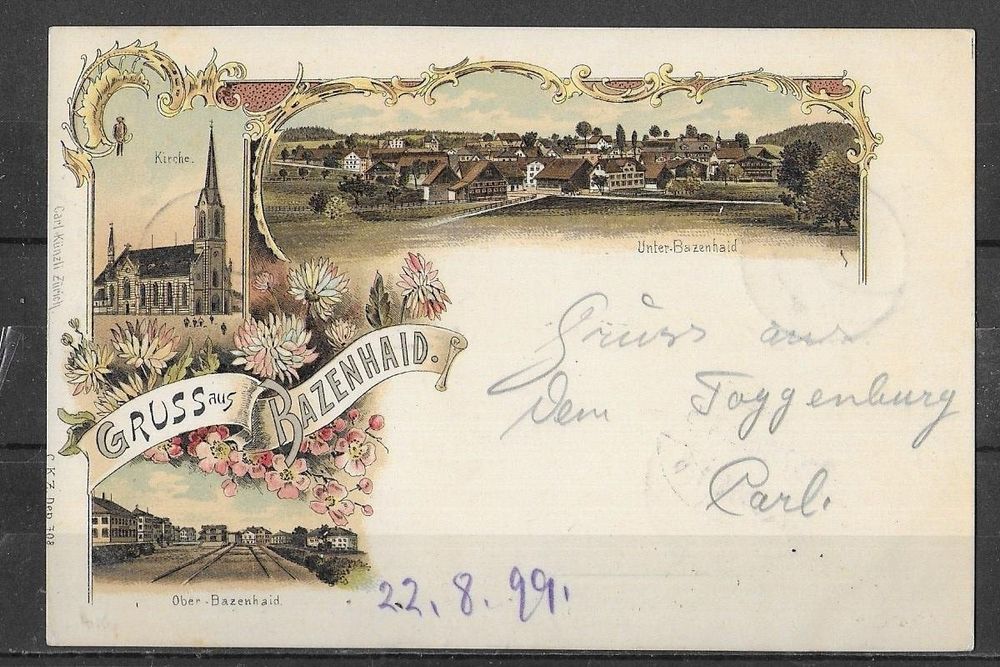 Kirche.
Unter-Bazenhaid
Carl Künzli Zürich.
GRUSS aus BAZENHAID.
Gruss aus
dem Toggenburg
Carl.
C.K.Z. Dep. 708
Ober-Bazenhaid.
22. 8. 99.